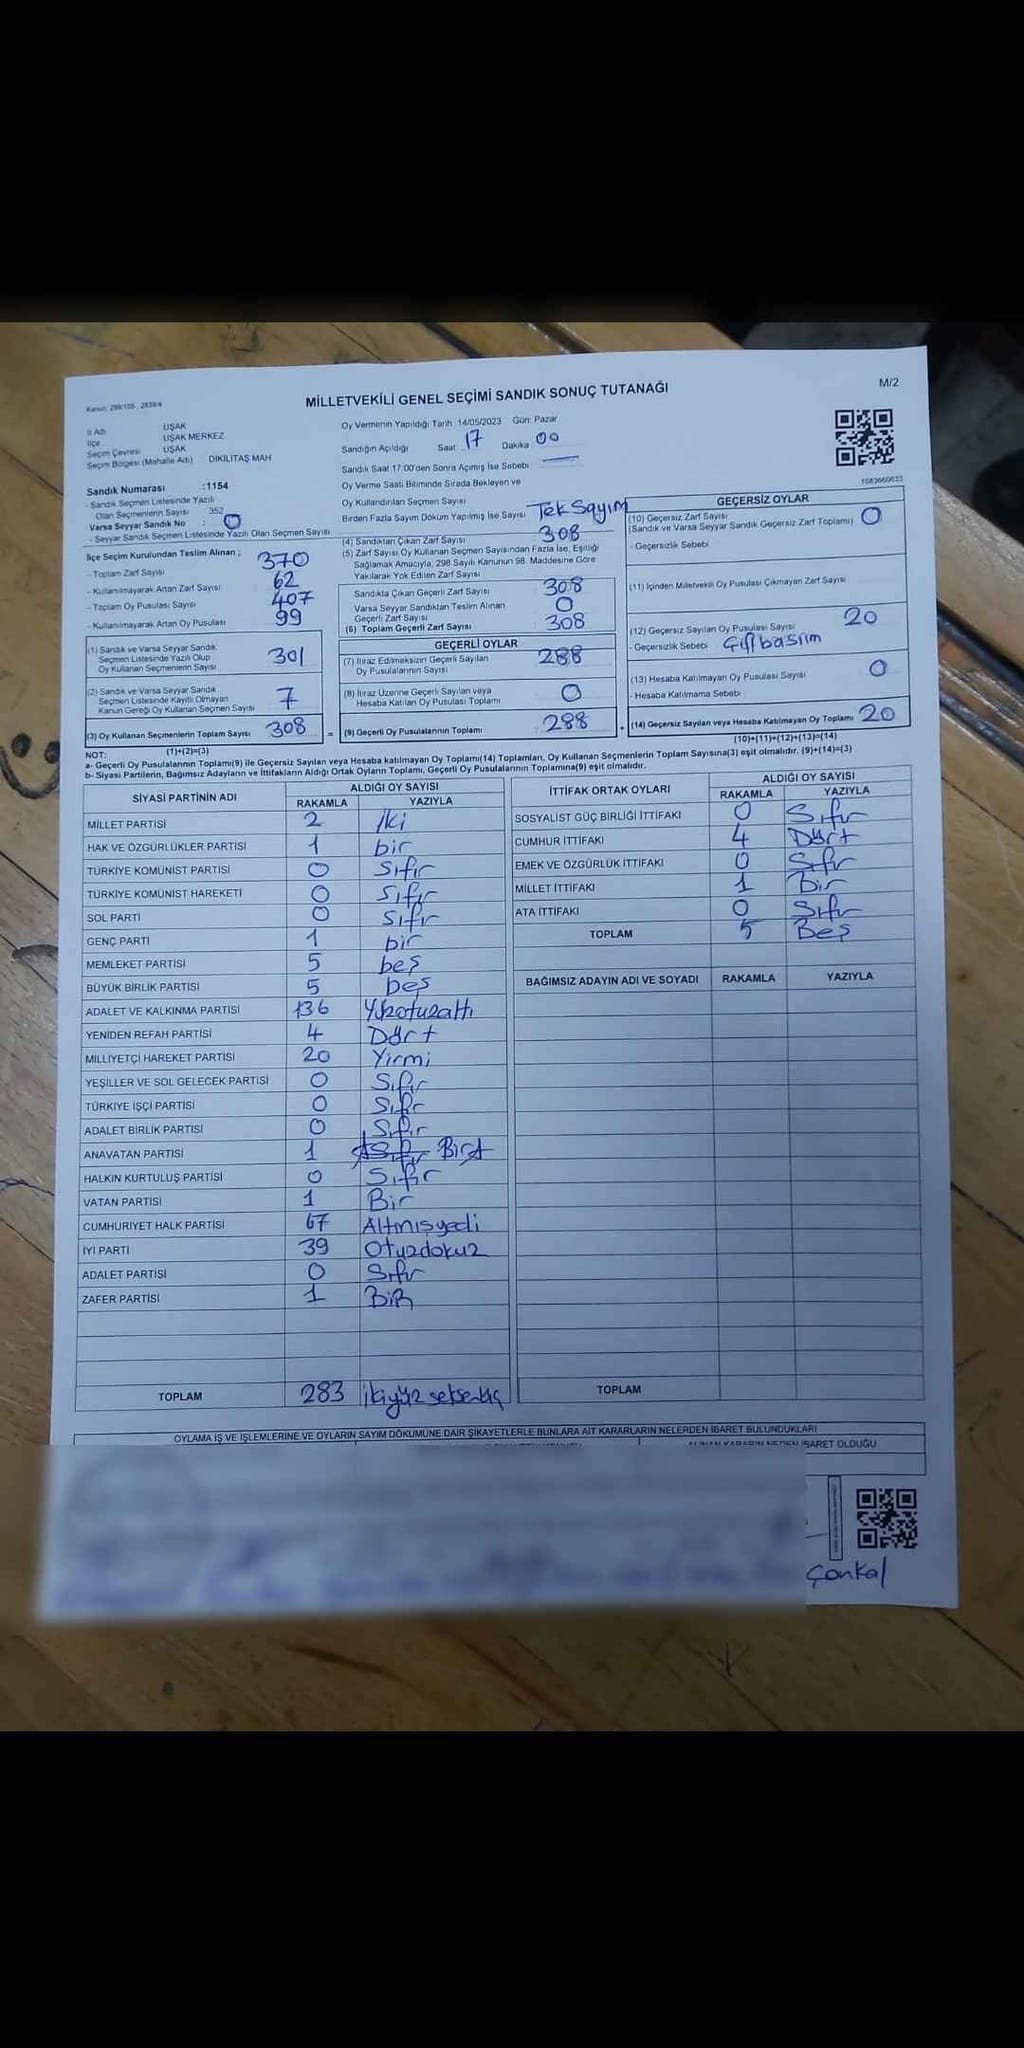 Kanun: 298/105 , 2839/4
MİLLETVEKİLİ GENEL SEÇİMİ SANDIK SONUÇ TUTANAĞI
M/2
İl Adı : UŞAK
İlçe : UŞAK MERKEZ
Seçim Çevresi : UŞAK
Seçim Bölgesi (Mahalle Adı) DİKİLİTAŞ MAH
Sandık Numarası :1154
- Sandık Seçmen Listesinde Yazılı
Olan Seçmenlerin Sayısı 352
Varsa Seyyar Sandık No : 0
- Seyyar Sandık Seçmen Listesinde Yazılı Olan Seçmen Sayısı
Oy Vermenin Yapıldığı Tarih 14/05/2023 Gün Pazar
Sandığın Açıldığı Saat 17 Dakika 00
Sandık Saat 17:00'den Sonra Açımış İse Sebebi
Oy Verme Saati Bitiminde Sırada Bekleyen ve
Oy Kullandırılan Seçmen Sayısı
Birden Fazla Sayım Döküm Yapılmış İse Sayısı Tek Sayım
1083660633
İlçe Seçim Kurulundan Teslim Alınan ;
- Toplam Zarf Sayısı 370
- Kullanılmayarak Artan Zarf Sayısı 62
- Toplam Oy Pusulası Sayısı 407
- Kullanılmayarak Artan Oy Pusulası 99
(1) Sandık ve Varsa Seyyar Sandık
Seçmen Listesinde Yazılı Olup
Oy Kullanan Seçmenlerin Sayısı 301
(2) Sandık ve Varsa Seyyar Sandık
Seçmen Listesinde Kayıtlı Olmayan
Kanun Gereği Oy Kullanan Seçmen Sayısı 7
(3) Oy Kullanan Seçmenlerin Toplam Sayısı 308
(1)+(2)=(3)
(4) Sandıktan Çıkan Zarf Sayısı 308
(5) Zarf Sayısı Oy Kullanan Seçmen Sayısından Fazla İse, Eşitliği
Sağlamak Amacıyla, 298 Sayılı Kanunun 98. Maddesine Göre
Yakılarak Yok Edilen Zarf Sayısı
Sandıkta Çıkan Geçerli Zarf Sayısı 308
Varsa Seyyar Sandıktan Teslim Alınan
Geçerli Zarf Sayısı 0
(6) Toplam Geçerli Zarf Sayısı 308
GEÇERLİ OYLAR
(7) İtiraz Edilmeksizin Geçerli Sayılan
Oy Pusulalarının Sayısı 288
(8) İtiraz Üzerine Geçerli Sayılan veya
Hesaba Katılan Oy Pusulası Toplamı 0
= (9) Geçerli Oy Pusulalarının Toplamı 288 +
GEÇERSİZ OYLAR
(10) Geçersiz Zarf Sayısı
(Sandık ve Varsa Seyyar Sandık Geçersiz Zarf Toplamı) 0
- Geçersizlik Sebebi
(11) İçinden Milletvekili Oy Pusulası Çıkmayan Zarf Sayısı
(12) Geçersiz Sayılan Oy Pusulası Sayısı 20
- Geçersizlik Sebebi Çift basım
(13) Hesaba Katılmayan Oy Pusulası Sayısı 0
- Hesaba Katılmama Sebebi
(14) Geçersiz Sayılan veya Hesaba Katılmayan Oy Toplamı 20
(10)+(11)+(12)+(13)=(14)
NOT:
a- Geçerli Oy Pusulalarının Toplamı(9) ile Geçersiz Sayılan veya Hesaba katılmayan Oy Toplamı(14) Toplamları, Oy Kullanan Seçmenlerin Toplam Sayısına(3) eşit olmalıdır. (9)+(14)=(3)
b- Siyasi Partilerin, Bağımsız Adayların ve İttifakların Aldığı Ortak Oyların Toplamı, Geçerli Oy Pusulalarının Toplamına(9) eşit olmalıdır.
SİYASİ PARTİNİN ADI
ALDIĞI OY SAYISI
RAKAMLA YAZIYLA
MİLLET PARTİSİ 2 İki
HAK VE ÖZGÜRLÜKLER PARTİSİ 1 bir
TÜRKİYE KOMÜNİST PARTİSİ 0 Sıfır
TÜRKİYE KOMÜNİST HAREKETİ 0 Sıfır
SOL PARTİ 0 Sıfır
GENÇ PARTİ 1 bir
MEMLEKET PARTİSİ 5 beş
BÜYÜK BİRLİK PARTİSİ 5 beş
ADALET VE KALKINMA PARTİSİ 136 Yüzotuzaltı
YENİDEN REFAH PARTİSİ 4 Dört
MİLLİYETÇİ HAREKET PARTİSİ 20 Yirmi
YEŞİLLER VE SOL GELECEK PARTİSİ 0 Sıfır
TÜRKİYE İŞÇİ PARTİSİ 0 Sıfır
ADALET BİRLİK PARTİSİ 0 Sıfır
ANAVATAN PARTİSİ 1 Bir
HALKIN KURTULUŞ PARTİSİ 0 Sıfır
VATAN PARTİSİ 1 Bir
CUMHURİYET HALK PARTİSİ 67 Altmışyedi
İYİ PARTİ 39 Otuzdokuz
ADALET PARTİSİ 0 Sıfır
ZAFER PARTİSİ 1 BİR
TOPLAM 283 ikiyüz seksenüç
İTTİFAK ORTAK OYLARI
ALDIĞI OY SAYISI
RAKAMLA YAZIYLA
SOSYALİST GÜÇ BİRLİĞİ İTTİFAKI 0 Sıfır
CUMHUR İTTİFAKI 4 Dört
EMEK VE ÖZGÜRLÜK İTTİFAKI 0 Sıfır
MİLLET İTTİFAKI 1 Bir
ATA İTTİFAKI 0 Sıfır
TOPLAM 5 Beş
BAĞIMSIZ ADAYIN ADI VE SOYADI RAKAMLA YAZIYLA
TOPLAM
OYLAMA İŞ VE İŞLEMLERİNE VE OYLARIN SAYIM DÖKÜMÜNE DAİR ŞİKAYETLERLE BUNLARA AİT KARARLARIN NELERDEN İBARET BULUNDUKLARI
ALINAN KARARIN NEDEN İBARET OLDUĞU
Çonkal